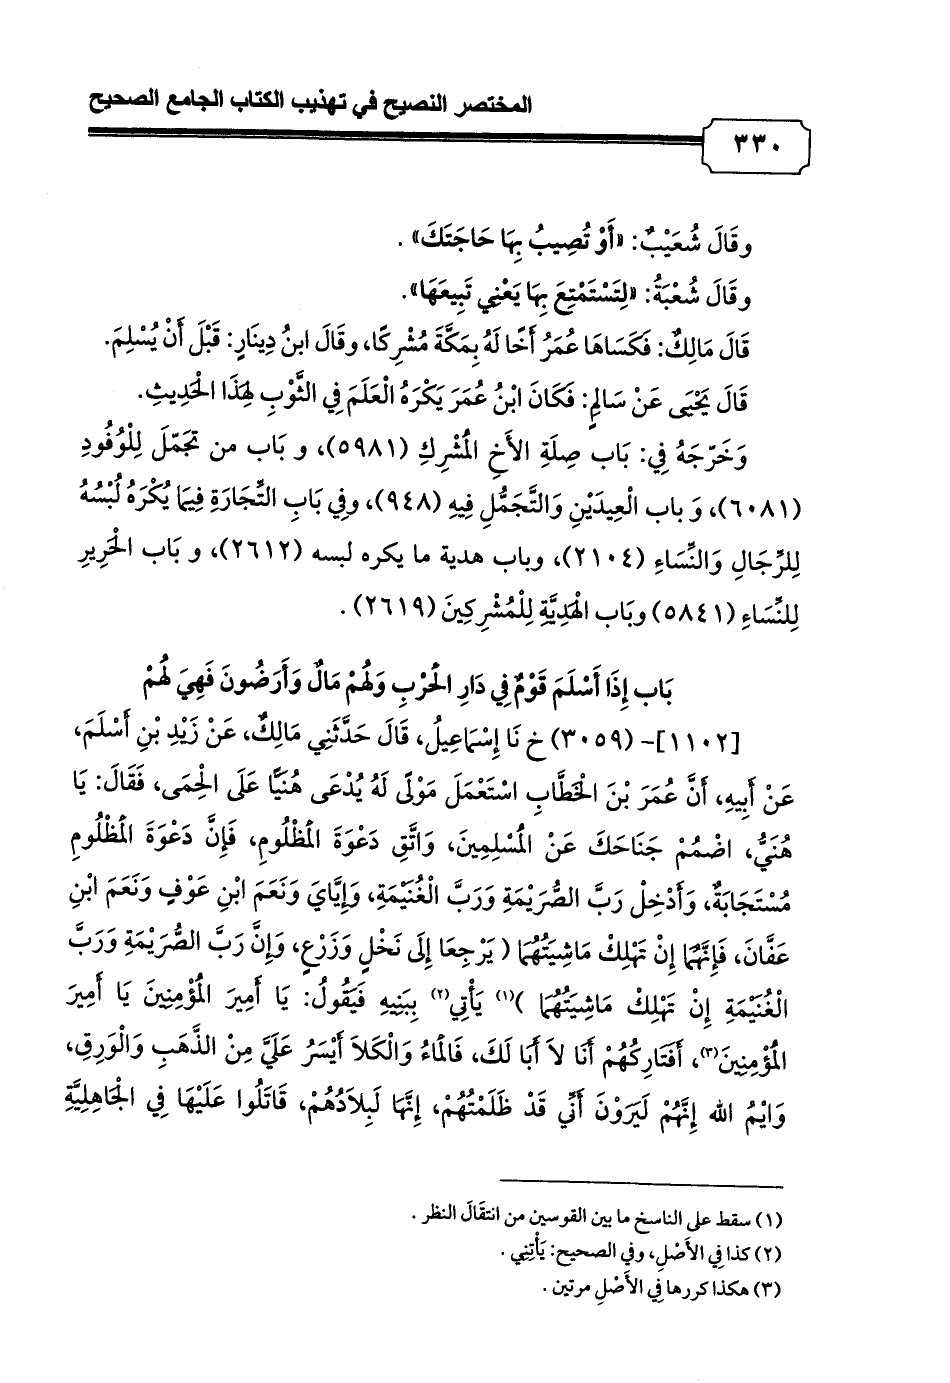 المختصر النصيح في تهذيب الكتاب الجامع الصحيح
٣٣٠
وقَالَ شُعَيْبٌ: «أَوْ تُصِيبُ بِهَا حَاجَتَكَ» .
وقَالَ شُعْبَةُ: «لِتَسْتَمْتِعَ بِهَا يَعْنِي تَبِيعَهَا».
قَالَ مَالِكٌ: فَكَسَاهَا عُمَرُ أَخًا لَهُ بِمَكَّةَ مُشْرِكًا، وقَالَ ابنُ دِينَارٍ: قَبْلَ أَنْ يُسْلِمَ.
قَالَ يَحْيَى عَنْ سَالِمٍ: فَكَانَ ابْنُ عُمَرَ يَكْرَهُ الْعَلَمَ فِي الثَّوْبِ لِهَذَا الْحَدِيثِ.
وَخَرَّجَهُ فِي: بَاب صِلَةِ الأَخِ الْمُشْرِكِ (٥٩٨١)، و بَاب من تَجَمّلَ لِلْوُفُودِ
(٦٠٨١)، وَ باب الْعِيدَيْنِ وَالتَّجَمُّلِ فِيهِ (٩٤٨)، وفِي بَابِ التِّجَارَةِ فِيمَا يُكْرَهُ لُبْسُهُ
لِلرِّجَالِ وَالنِّسَاءِ (٢١٠٤)، وباب هدية ما يكره لبسه (٢٦١٢)، و بَاب الْحَرِيرِ
لِلنِّسَاءِ (٥٨٤١) وبَاب الْهَدِيَّةِ لِلْمُشْرِكِينَ (٢٦١٩) .
بَاب إِذَا أَسْلَمَ قَوْمٌ فِي دَارِ الْحَرْبِ وَلَهُمْ مَالٌ وَأَرَضُونَ فَهِيَ لَهُمْ
[١١٠٢]- (٣٠٥٩) خ نَا إِسْمَاعِيلُ، قَالَ حَدَّثَنِي مَالِكٌ، عَنْ زَيْدِ بْنِ أَسْلَمَ،
عَنْ أَبِيهِ، أَنَّ عُمَرَ بْنَ الْخَطَّابِ اسْتَعْمَلَ مَوْلًى لَهُ يُدْعَى هُنَيًّا عَلَى الْحِمَى، فَقَالَ: يَا
هُنَيُّ، اضْمُمْ جَنَاحَكَ عَنْ الْمُسْلِمِينَ، وَاتَّقِ دَعْوَةَ الْمَظْلُومِ، فَإِنَّ دَعْوَةَ الْمَظْلُومِ
مُسْتَجَابَةٌ، وَأَدْخِلْ رَبَّ الصُّرَيْمَةِ وَرَبَّ الْغُنَيْمَةِ، وَإِيَّايَ وَنَعَمَ ابْنِ عَوْفٍ وَنَعَمَ ابْنِ
عَفَّانَ، فَإِنَّهُمَا إِنْ تَهْلِكْ مَاشِيَتُهُمَا ( يَرْجِعَا إِلَى نَخْلٍ وَزَرْعٍ، وَإِنَّ رَبَّ الصُّرَيْمَةِ وَرَبَّ
الْغُنَيْمَةِ إِنْ تَهْلِكْ مَاشِيَتُهُمَا )(١) يَأْتِي(٢) بِبَنِيهِ فَيَقُولُ: يَا أَمِيرَ الْمُؤْمِنِينَ يَا أَمِيرَ
الْمُؤْمِنِينَ(٣)، أَفَتَارِكُهُمْ أَنَا لاَ أَبَا لَكَ، فَالْمَاءُ وَالْكَلاَ أَيْسَرُ عَلَيَّ مِنْ الذَّهَبِ وَالْوَرِقِ،
وَايْمُ الله إِنَّهُمْ لَيَرَوْنَ أَنِّي قَدْ ظَلَمْتُهُمْ، إِنَّهَا لَبِلاَدُهُمْ، قَاتَلُوا عَلَيْهَا فِي الْجَاهِلِيَّةِ
(١) سقط على الناسخ ما بين القوسين من انتقَالَ النظر .
(٢) كذا فِي الأَصْلِ، وفي الصحيح: يَأْتِنِي .
(٣) هكذا كررها فِي الأَصْلِ مرتين .